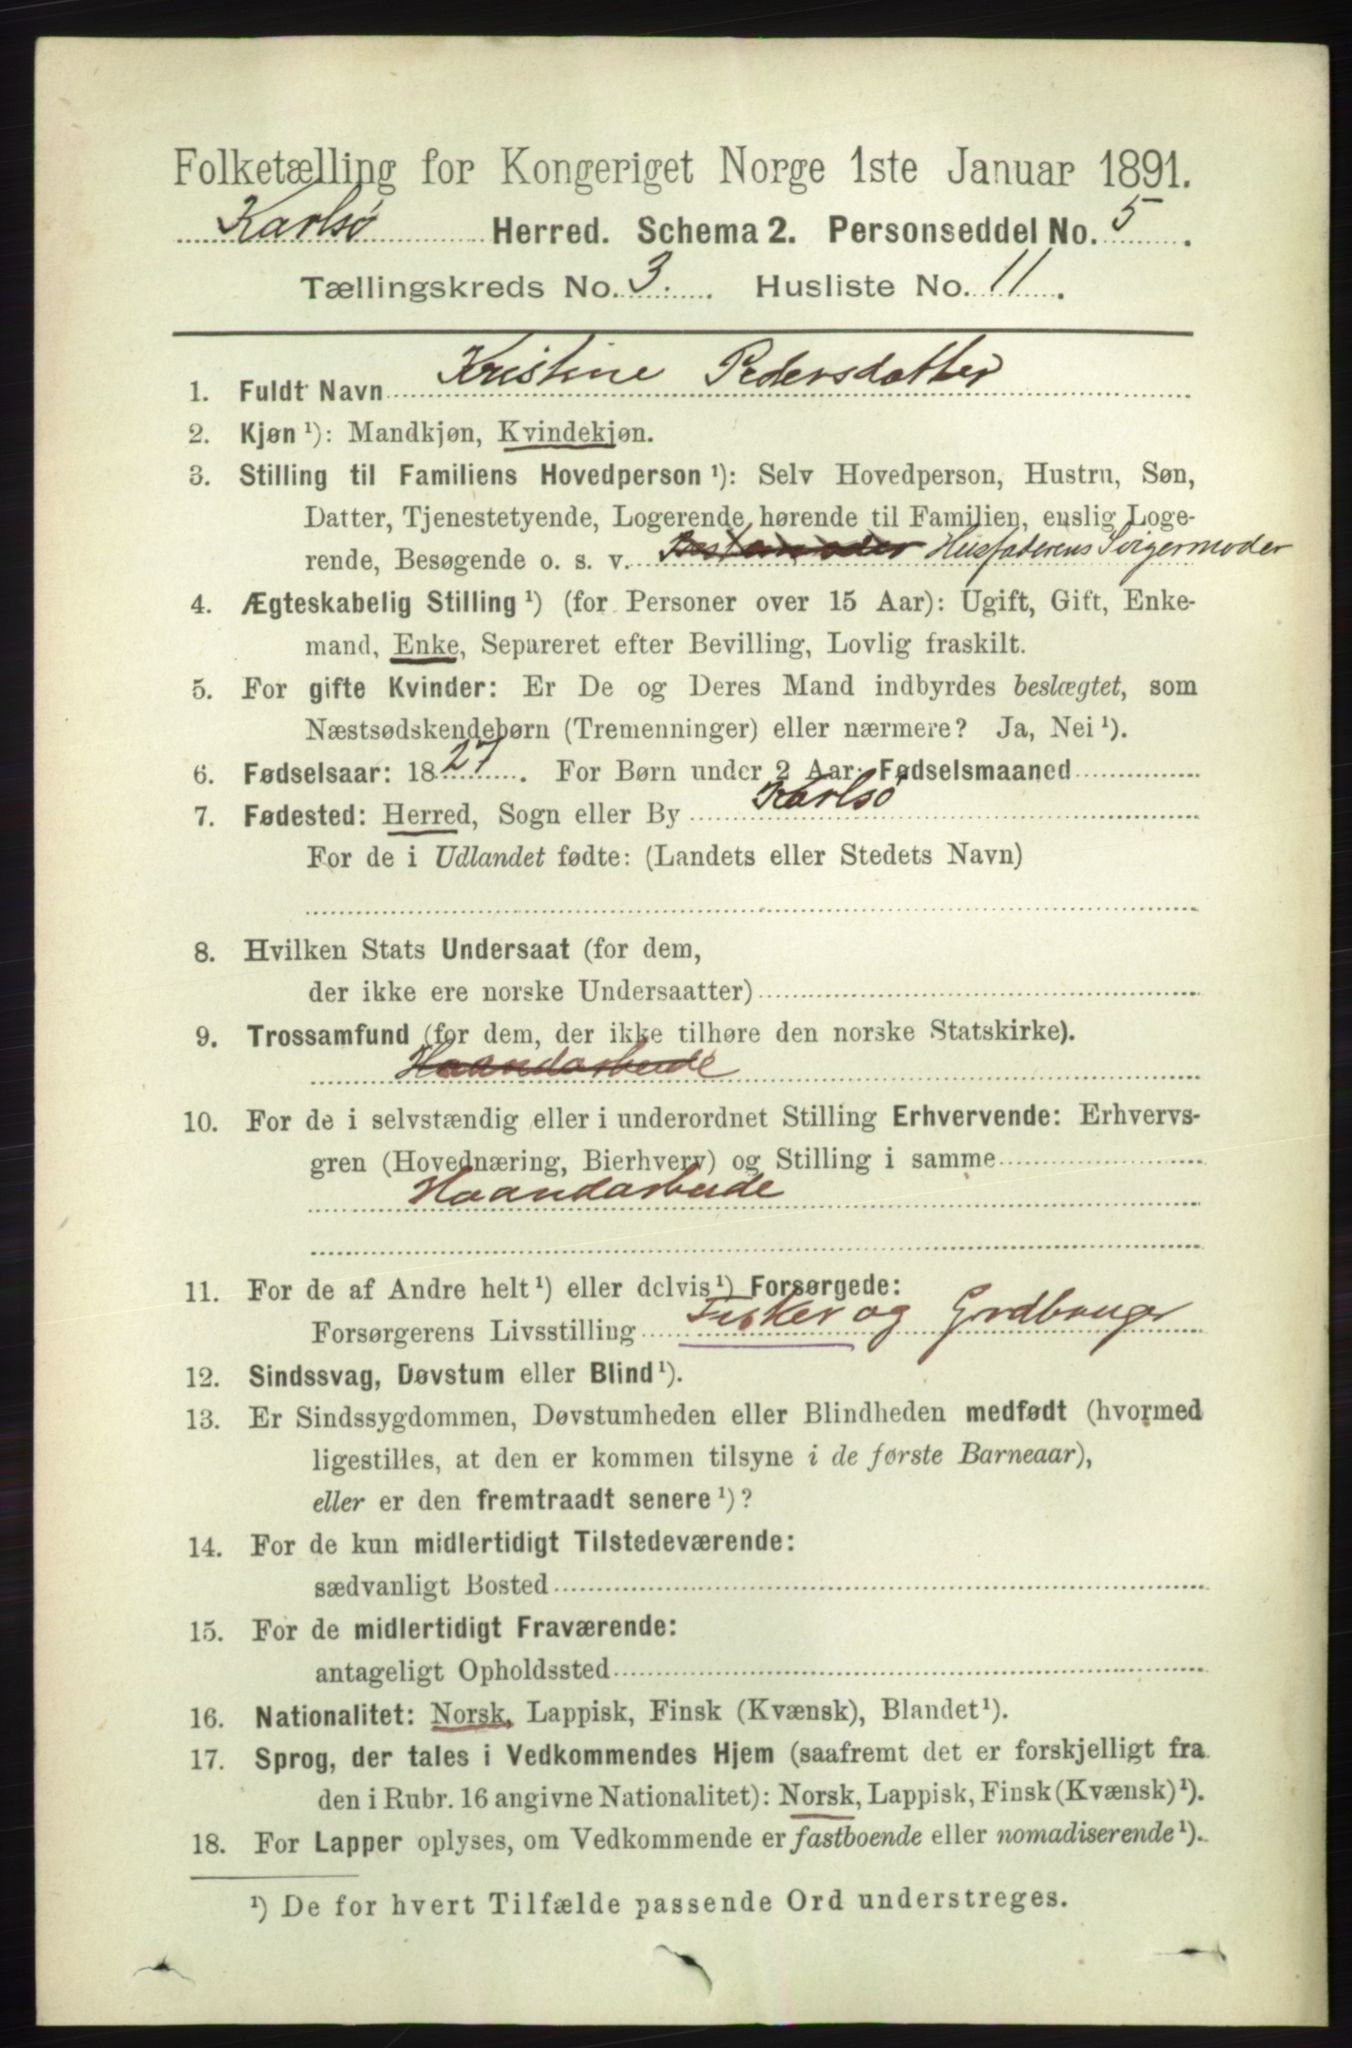 Folketælling for Kongeriget Norge 1ste Januar 1891.
Karlsø Herred. Schema 2. Personseddel No. 5.
Tællingskreds No. 3. Husliste No. 11.
1. Fuldt Navn Kristine Pedersdatter
2. Kjøn ¹): Mandkjøn, Kvindekjøn.
3. Stilling til Familiens Hovedperson ¹): Selv Hovedperson, Hustru, Søn,
Datter, Tjenestetyende, Logerende hørende til Familien, enslig Loge-
rende, Besøgende o. s. v. Bestemoder Husfaderens Svigermoder
4. Ægteskabelig Stilling ¹) (for Personer over 15 Aar): Ugift, Gift, Enke-
mand, Enke, Separeret efter Bevilling, Lovlig fraskilt.
5. For gifte Kvinder: Er De og Deres Mand indbyrdes beslægtet, som
Næstsødskendebørn (Tremenninger) eller nærmere? Ja, Nei ¹).
6. Fødselsaar: 1827. For Børn under 2 Aar: Fødselsmaaned
7. Fødested: Herred, Sogn eller By Karlsø
For de i Udlandet fødte: (Landets eller Stedets Navn)
8. Hvilken Stats Undersaat (for dem,
der ikke ere norske Undersaatter)
9. Trossamfund (for dem, der ikke tilhøre den norske Statskirke).
Haandarbeide
10. For de i selvstændig eller i underordnet Stilling Erhvervende: Erhvervs-
gren (Hovednæring, Bierhverv) og Stilling i samme
Haandarbeide
11. For de af Andre helt ¹) eller delvis ¹) Forsørgede:
Forsørgerens Livsstilling Fisker og Grdbruger
12. Sindssvag, Døvstum eller Blind ¹).
13. Er Sindssygdommen, Døvstumheden eller Blindheden medfødt (hvormed
ligestilles, at den er kommen tilsyne i de første Barneaar),
eller er den fremtraadt senere ¹)?
14. For de kun midlertidigt Tilstedeværende:
sædvanligt Bosted
15. For de midlertidigt Fraværende:
antageligt Opholdssted
16. Nationalitet: Norsk, Lappisk, Finsk (Kvænsk), Blandet ¹).
17. Sprog, der tales i Vedkommendes Hjem (saafremt det er forskjelligt fra
den i Rubr. 16 angivne Nationalitet): Norsk, Lappisk, Finsk (Kvænsk) ¹).
18. For Lapper oplyses, om Vedkommende er fastboende eller nomadiserende ¹).
¹) De for hvert Tilfælde passende Ord understreges.